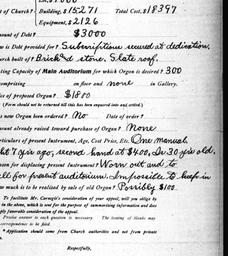 of Church? Building, $15271 Total Cost, $18397
Equipment, $2126
Amount of Debt? $3000
is Debt provided for? Subscriptions secured at dedication.
urch built of? Brick & stone. Slate roof.
ating Capacity of Main Auditorium for which Organ is desired? 300
comprising on floor and none in Gallery.
e of proposed Organ? $1800
(Form should not be returned till this has been inquired into and settled)
s new Organ been Ordered? No Date of order?
ount already raised toward purchase of Organ? None
rticulars of present Instrument, Age, Cost Price, Etc. One manual
t 7 yrs ago, second hand at $400. Is 30 yrs old.
son for displacing present Instrument? Worn out and to
all for present auditorium. Impossible to keep in
w much is to be realized by sale of old Organ? Possibly $100.
To facilitate Mr. Carnegie's consideration of your appeal, will you oblige by
in the above, which is sent for the purpose of summarizing information and does
ply favorable consideration of the appeal.
Precise answer to each question is necessary. The issuing of blanks may
correspondence to be forwarded.
* Application should come from Church authorities and not from private
Respectfully,